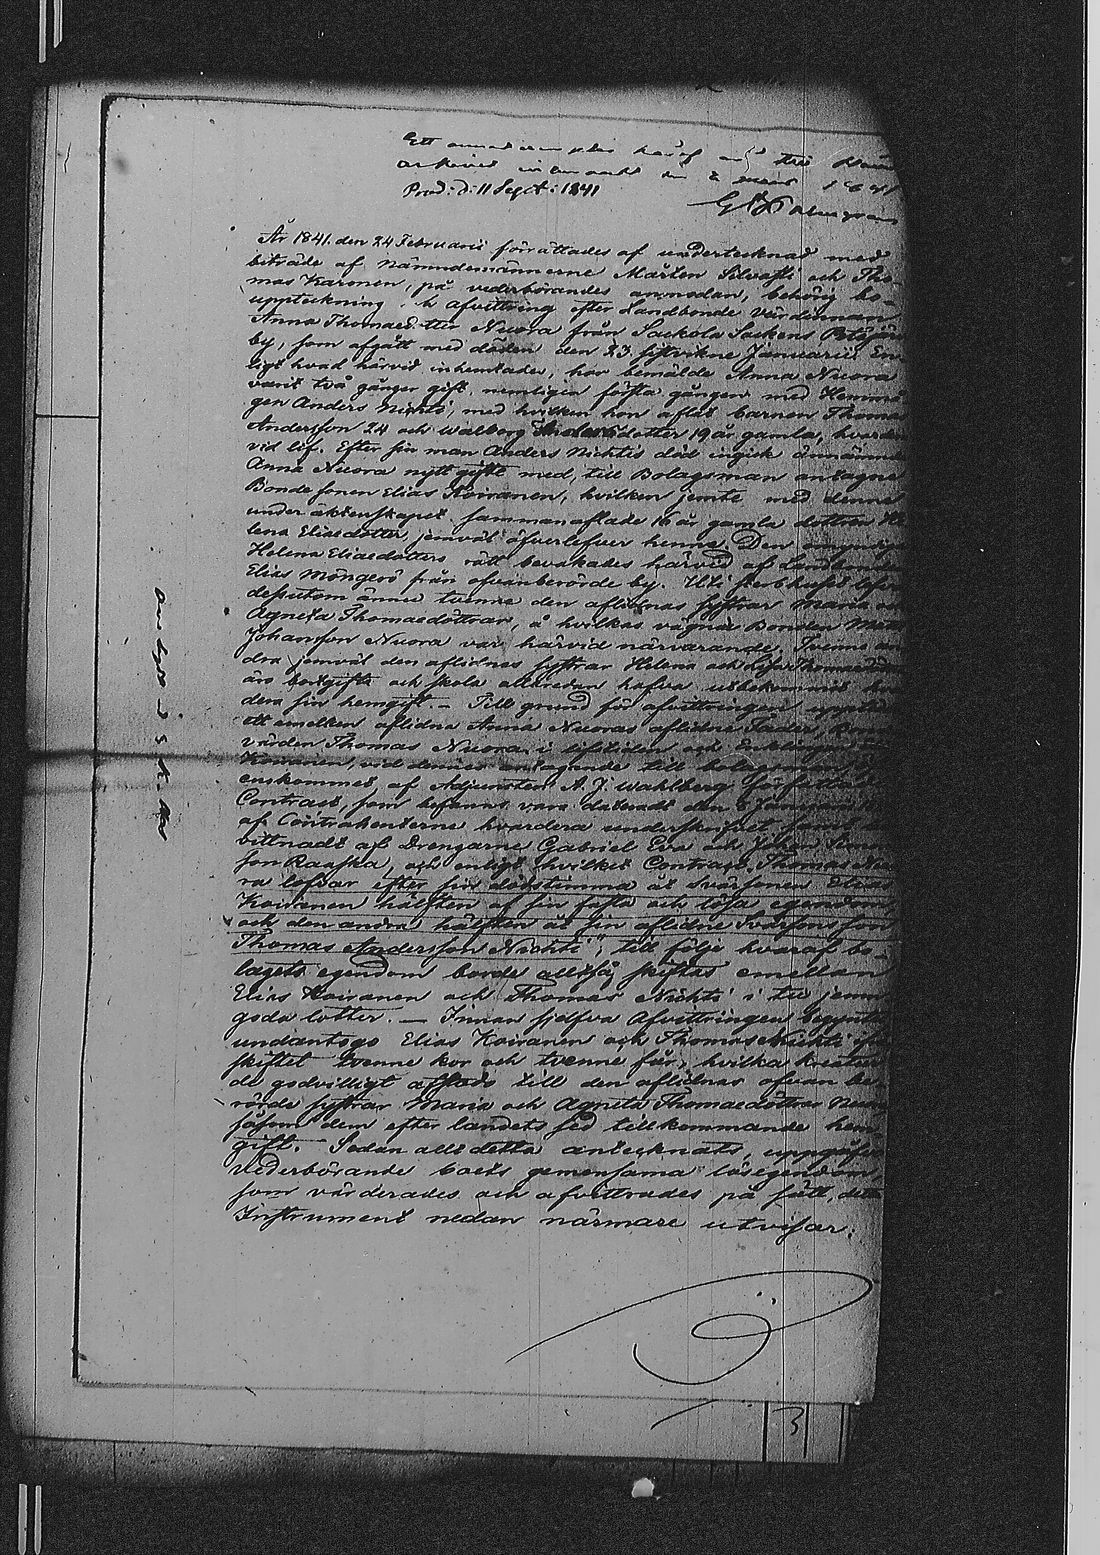 Ett annat exemplar häraf
arkivet
Prod: d: 11 Sept: 1841
År 1841. den 24 Februarii förrättades af undertecknad med
biträde af Nämndemännerne Mårten Silvasti och Tho-
mas Karonen, på vederbörandes anmodan, behörig bo-
uppteckning och afvittring efter Landbonde Värdinnan
Anna Thomaed:tter Nuora från Sackola Sockens Petäjär
by, som afgått med döden den 23. sistvikne Januarii. En-
ligt hvad härvid inhemtades, har bemälde Anna Nuora
varit två gånger gift, nemligen första gången med Hemmå
gen Anders Nichti, med hvilken hon aflat barnen Thomas
Andersson 24 och Walborg Andersdotter 19 år gamla, hvarden
vid lif. Efter sin man Anders Nichtis död ingick
Anna Nuora nytt gifte med, till Bolagsman antagne
Bonde sonen Elias Koiranen, hvilken jemte med denne
under äktenskapet sammanaflade 16 år gamla dottren He
lena Eliasdotter jemväl öfverlefver henne. Den
Helena Eliaedotters rätt bevakades härvid af Landbonden
Elias Möngerö från ofvanberörde by. Uti Sterbhuset
dessutom ännu tvenne den aflidnas systrar Maria och
Agneta Thomaedöttrar, å hvilkas vägnar Bonden Matts
Johansson Nuora var härvid närvarande. Tvenne an
dra jemväl den aflidnas systrar Helena och
äro bortgifta och skola allaredan hafva utbekommit
dera sin hemgift. — Till grund för afvittringen
ett emellan aflidna Anna Nuoras aflidne Fader,
värden Thomas Nuora i lifstiden och Enklingen Elias
Koiranen, vid dennes antagande till bolagsman
enskommet af Adjuncten A. J. Wahlberg författadt
Contract, som befanns vara dateradt den 6 Januarii
af Contrahenterne hvardera underskrifvet samt be
vittnadt af Drengarne Gabriel Eva och Johan
son Raaska, och enligt hvilket Contract "Thomas Nuo
ra lofvar efter sin dödstimma åt Svärsonen Elias
Koiranen hälften af sin fasta och lösa egendom,
och den andra hälften åt sin aflidne Svärsons son
Thomas Andersson Nichti", till följe hvaraf bo-
lagets egendom borde alltså skiftas emellan
Elias Koiranen och Thomas Nichti i tu jemn
goda lotter. — Innan sjelfva Afvittringen begyntes
undantogo Elias Koiranen och Thomas Nichti från
skiftet tvenne kor och tvenne får, hvilka kreatur
de godvilligt aflåto till den aflidnas ofvan be-
rörde systrar Maria och Agneta Thomaedöttrar Nuora
såsom dem efter landets sed tillkommande hem
gift. Sedan allt detta antecknats, uppgåfvo
Vederbörande boets gemensama lösegendom,
som värderades och afvittrades på sätt, detta
Instrument nedan närmare utvisar:
3